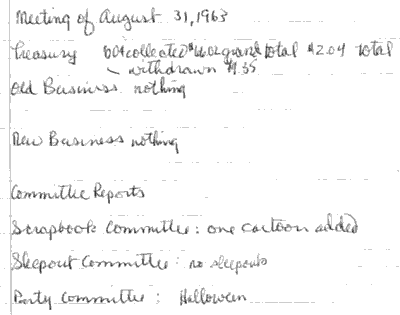 Meeting of August 31, 1963
Treasury 60¢ collected grand total $2.04 total
withdrawn
Old Business nothing
New Business nothing
Committee Reports
Scrapbook Committee: one cartoon added
Sleepout Committee: no sleepouts
Party Committee: Halloween